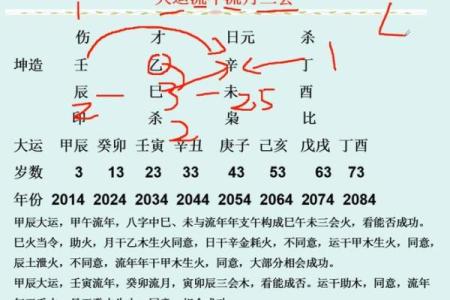 大运流年流月三会
伤 才 日元 杀
坤造 壬 乙 辛 丁
辰 巳 未 酉
印 杀 枭 比
1 2 3 2.5 2
大运 甲辰 癸卯 壬寅 辛丑 庚子 己亥 戊戌 丁酉
岁数 3 13 23 33 43 53 63 73
年份 2014 2024 2034 2044 2054 2064 2074 2084
甲辰大运，甲午流年，八字中巳、未与流年年支午构成巳午未三会火，看能否成功。
巳火当令，助火，月干乙木生火同意，日干辛金耗火，不同意，运干甲木生火，同意，
辰土泄火，不同意，流年年干甲木生火，同意，大部分相会成功。
甲辰大运，壬寅流年，癸卯流月，寅卯辰三会木，看能成否。运干助木，同意，流年